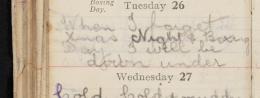 Boxing Day. Tuesday 26
When I forget
Xmas Night & Boxing
Day I will be
down under
Wednesday 27